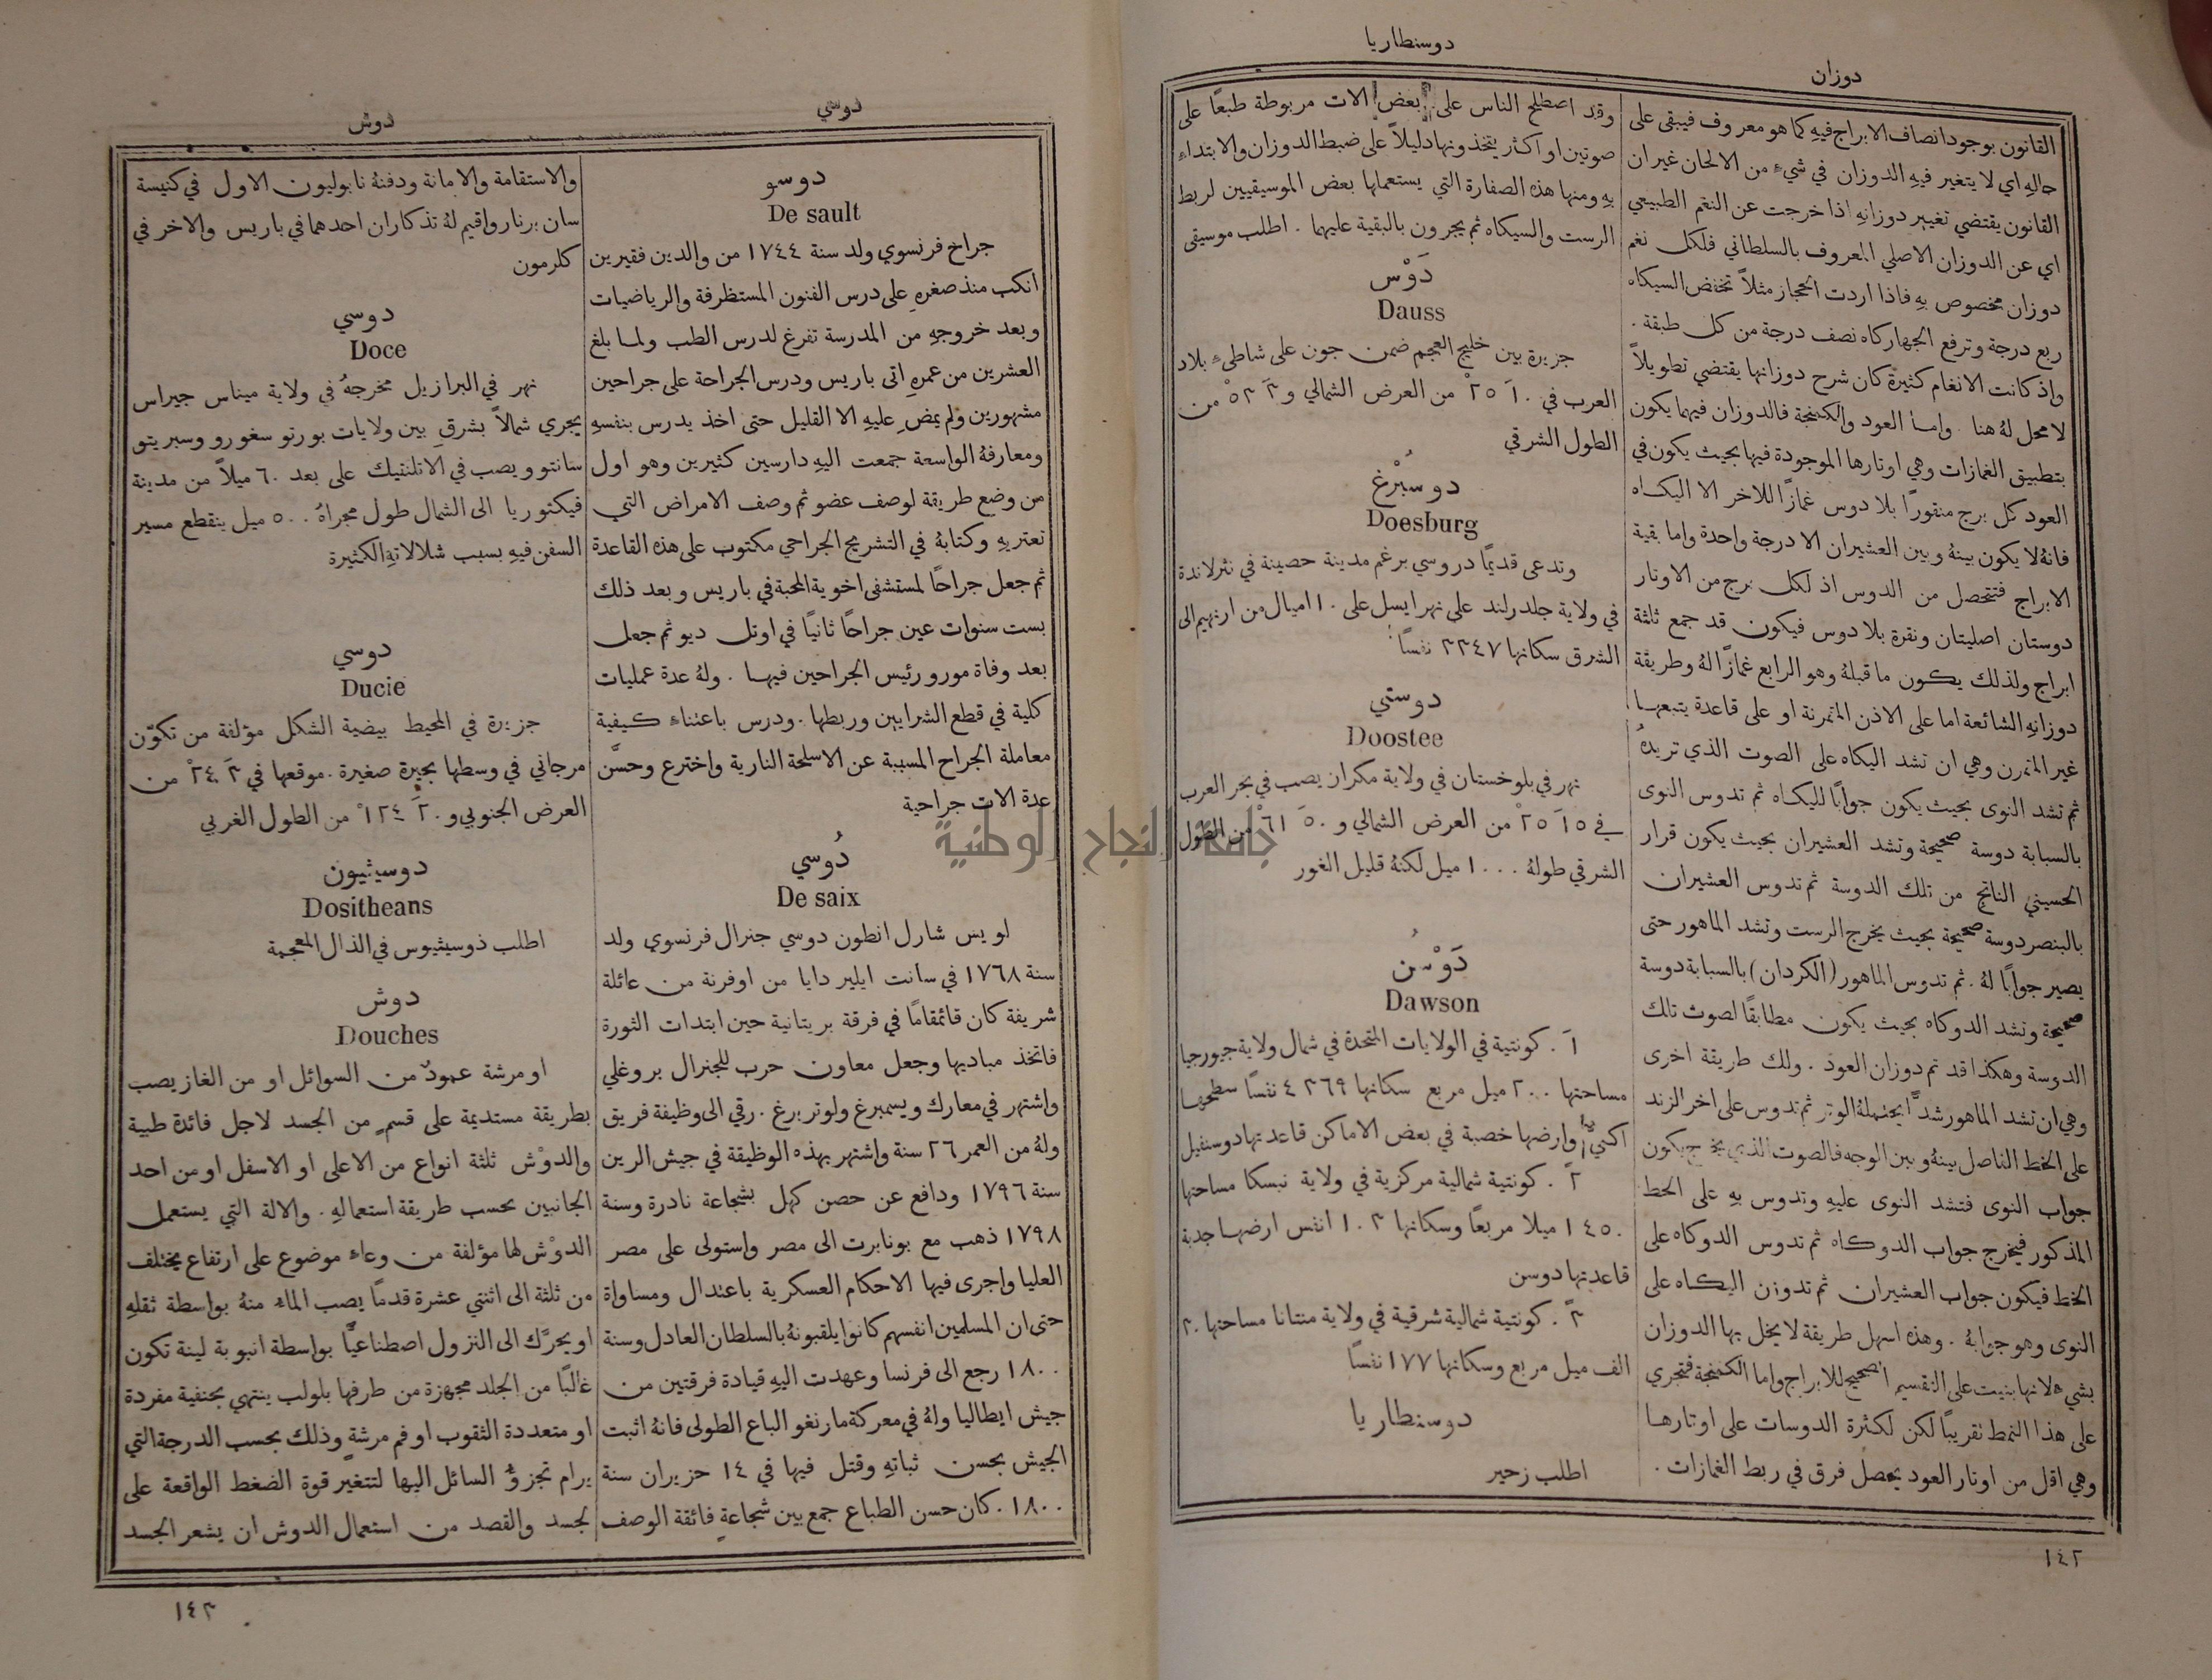 دوزان
دوسنطاريا
القانون بوجود انصاف الابراج فيهِ كما هو معروف فيبقى على
حالهِ اي لا يتغير فيهِ الدوزان في شيءٍ من الالحان غير ان
القانون يقتضي تغيير دوزانهِ اذا خرجت عن النغم الطبيعي
اي عن الدوزان الاصلي المعروف بالسلطاني فلكل نغم
دوزان مخصوص بهِ فاذا اردت الحجاز مثلاً تخفض السيكاه
ربع درجة وترفع الجهاركاه نصف درجة من كل طبقة .
واذ كانت الانغام كثيرة كان شرح دوزانها يقتضي تطويلاً
لا محل لهُ هنا . واما العود والكمنجة فالدوزان فيهما يكون
بتطبيق الغمازات وهي اوتارها الموجودة فيها بحيث يكون في
العود كل برج منقورًا بلا دوس غمازًا للاخر الا اليكاه
فانهُ لا يكون بينهُ وبين العشيران الا درجة واحدة واما بقية
الابراج فتتحصل من الدوس اذ لكل برج من الاوتار
دوستان اصليتان ونقرة بلا دوس فيكون قد جمع ثلثة
ابراج ولذلك يكون ما قبلهُ وهو الرابع غمازًا لهُ وطريقة
دوزانهِ الشائعة اما على الاذن المتمرنة او على قاعدة يتبعها
غير المتمرن وهي ان تشد اليكاه على الصوت الذي تريدهُ
ثم تشد النوى بحيث يكون جوابًا لليكاه ثم تدوس النوى
بالسبابة دوسة صحيحة وتشد العشيران بحيث يكون قرار
الحسيني الناتج من تلك الدوسة ثم تدوس العشيران
بالبنصر دوسة صحيحة بحيث يخرج الرست وتشد الماهور حتى
يصير جوابًا لهُ . ثم تدوس الماهور (الكردان) بالسبابة دوسة
صحيحة وتشد الدوكاه بحيث يكون مطابقًا لصوت تلك
الدوسة وهكذا قد تم دوزان العود . ولك طريقة اخرى
وهي ان تشد الماهور شدًّا يحتملهُ الوتر ثم تدوس على اخر الزند
على الخط الفاصل بينهُ وبين الوجه فالصوت الذي يخرج يكون
جواب النوى فتشد النوى عليهِ وتدوس بهِ على الخط
المذكور فيخرج جواب الدوكاه ثم تدوس الدوكاه على
الخط فيكون جواب العشيران ثم تدوزن اليكاه على
النوى وهو جوابهُ . وهذه اسهل طريقة لا يخل بها الدوزان
بشيءٍ لانها بنيت على التقسيم الصحيح للابراج واما الكمنجة فتجري
على هذا النمط تقريبًا لكن لكثرة الدوسات على اوتارها
وهي اقل من اوتار العود يحصل فرق في ربط الغمازات .
وقد اصطلح الناس على بعض الات مربوطة طبعًا على
صوتين او اكثر يتخذونها دليلاً على ضبط الدوزان والابتداءِ
بهِ ومنها هذه الصفارة التي يستعملها بعض الموسيقيين لربط
الرست والسيكاه ثم يجرون بالبقية عليهما . اطلب موسيقى
دَوْس
Dauss
جزيرة بين خليج العجم ضمن جون على شاطيءِ بلاد
العرب في ١٠َ ٢٥ْ من العرض الشمالي و٣َ ٥٣ْ من
الطول الشرقي
دوسْبُرْغ
Doesburg
وتدعى قديمًا دروسي برغم مدينة حصينة في نثرلاندة
في ولاية جلدرلند على نهر ايسل على ١٠ اميال من ارنهيم الى
الشرق سكانها ٣٣٤٧ نفسًا
دوستي
Doostee
نهر في بلوخستان في ولاية مكران يصب في بحر العرب
في ١٥َ ٢٥ْ من العرض الشمالي و٥٠َ ٦١ْ من الطول
الشرقي طولهُ ١٠٠٠ ميل لكنهُ قليل الغور
دَوْسُن
Dawson
١ً . كونتية في الولايات المتحدة في شمال ولاية جيورجيا
مساحتها ٢٠٠ ميل مربع سكانها ٤٣٦٩ نفسًا سطحها
اكني وارضها خصبة في بعض الاماكن قاعدتها دوسنفيل
٢ً . كونتية شمالية مركزية في ولاية نبسكا مساحتها
١٤٥٠ ميلا مربعًا وسكانها ١٠٣ انفس ارضها جدبة
قاعدتها دوسن
٣ً . كونتية شمالية شرقية في ولاية منتانا مساحتها ٣٠
الف ميل مربع وسكانها ١٧٧ نفسًا
دوسنطاريا
اطلب زحير
١٤٢
دوسي
دوش
دوسو
De sault
جراح فرنسوي ولد سنة ١٧٤٤ من والدين فقيرين
انكب منذ صغرهِ على درس الفنون المستظرفة والرياضيات
وبعد خروجهِ من المدرسة تفرغ لدرس الطب ولما بلغ
العشرين من عمرهِ اتى باريس ودرس الجراحة على جراحين
مشهورين ولم يمضِ عليهِ الا القليل حتى اخذ يدرس بنفسهِ
ومعارفهُ الواسعة جمعت اليهِ دارسين كثيرين وهو اول
من وضع طريقة لوصف عضو ثم وصف الامراض التي
تعتريهِ وكتابهُ في التشريح الجراحي مكتوب على هذه القاعدة
ثم جعل جراحًا لمستشفى اخوية المحبة في باريس وبعد ذلك
بست سنوات عين جراحًا ثانيًا في اوتل ديو ثم جعل
بعد وفاة مورو رئيس الجراحين فيها . ولهُ عدة عمليات
كلية في قطع الشرايين وربطها . ودرس باعتناءٍ كيفية
معاملة الجراح المسببة عن الاسلحة النارية واخترع وحسَّن
عدة الات جراحية
دُوسي
De saix
لويس شارل انطون دوسي جنرال فرنسوي ولد
سنة ١٧٦٨ في سانت ايلير دايا من اوفرنة من عائلة
شريفة كان قائمقامًا في فرقة بريتانية حين ابتدات الثورة
فاتخذ مباديها وجعل معاون حرب للجنرال بروغلي
واشتهر في معارك ويسمبرغ ولوتربرغ . رقي الى وظيفة فريق
ولهُ من العمر ٢٦ سنة واشتهر بهذه الوظيفة في جيش الرين
سنة ١٧٩٦ ودافع عن حصن كهل بشجاعة نادرة وسنة
١٧٩٨ ذهب مع بونابرت الى مصر واستولى على مصر
العليا واجرى فيها الاحكام العسكرية باعتدال ومساواة
حتى ان المسلمين انفسهم كانوا يلقبونهُ بالسلطان العادل وسنة
١٨٠٠ رجع الى فرنسا وعهدت اليهِ قيادة فرقتين من
جيش ايطاليا ولهُ في معركة مارنغو الباع الطولى فانهُ اثبت
الجيش بحسن ثباتهِ وقتل فيها في ١٤ حزيران سنة
١٨٠٠ . كان حسن الطباع جمع بين شجاعةٍ فائقة الوصف
والاستقامة والامانة ودفنهُ نابوليون الاول في كنيسة
سان برنار واقيم لهُ تذكاران احدهما في باريس والاخر في
كلرمون
دوسي
Doce
نهر في البرازيل مخرجهُ في ولاية ميناس جيراس
يجري شمالاً بشرق بين ولايات بورتو سغورو وسبريتو
سانتو ويصب في الاتلنتيك على بعد ٦٠ ميلاً من مدينة
فيكتوريا الى الشمال طول مجراهُ ٥٠٠ ميل ينقطع مسير
السفن فيهِ بسبب شلالاتهِ الكثيرة
دوسي
Ducie
جزيرة في المحيط بيضية الشكل مؤلفة من تكوّن
مرجاني في وسطها بحيرة صغيرة . موقعها في ٤٠َ ٢٤ْ من
العرض الجنوبي و٢٠َ ١٢٤ْ من الطول الغربي
دوسيثيون
Dositheans
اطلب ذوسيثيوس في الذال المعجمة
دوش
Douches
او مرشة عمودٌ من السوائل او من الغاز يصب
بطريقة مستديمة على قسمٍ من الجسد لاجل فائدة طبية
والدوْش ثلثة انواع من الاعلى او الاسفل او من احد
الجانبين بحسب طريقة استعمالهِ . والالة التي يستعمل
الدوْش لها مؤلفة من وعاءٍ موضوع على ارتفاع يختلف
من ثلثة الى اثنتي عشرة قدمًا يصب الماء منهُ بواسطة ثقلهِ
او يحرَّك الى النزول اصطناعيًّا بواسطة انبوبة لينة تكون
غالبًا من الجلد مجهزة من طرفها بلولب ينتهي بحنفية مفردة
او متعددة الثقوب او فم مرشةٍ وذلك بحسب الدرجة التي
يرام تجزؤُ السائل اليها لتتغير قوة الضغط الواقعة على
لجسد والقصد من استعمال الدوش ان يشعر الجسد
١٤٣
جامعة النجاح الوطنية